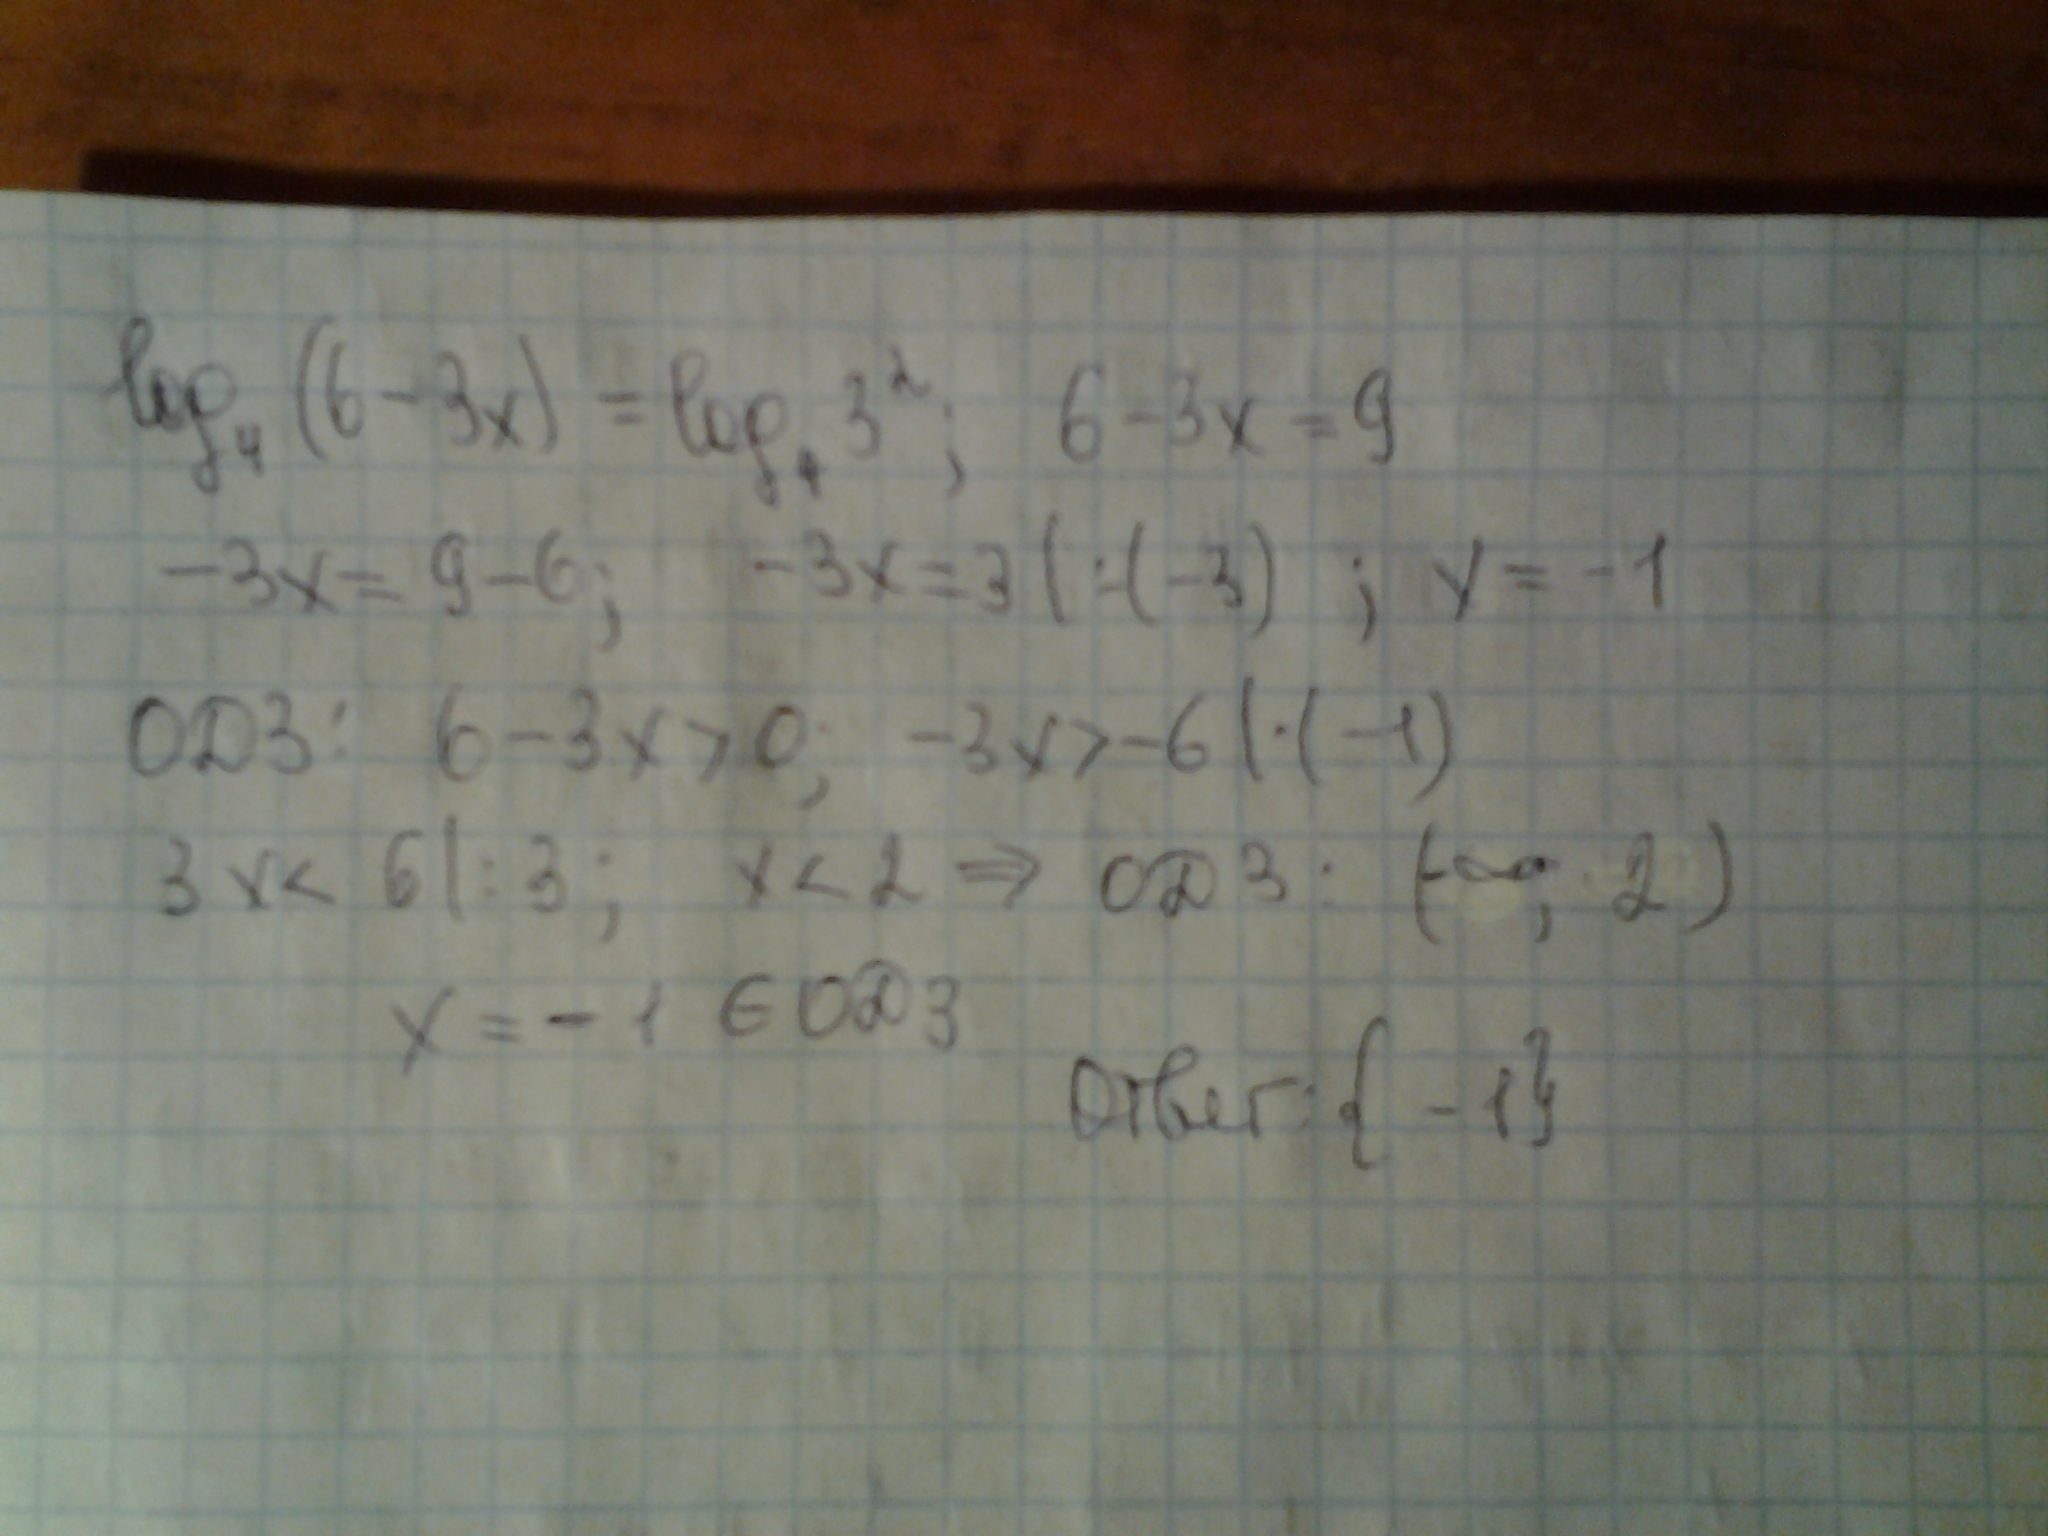 log₄ (6-3x) = log₄ 3²; 6-3x=9
-3x= 9-6; -3x=3 |:(-3) ; x=-1
ОДЗ: 6-3x>0; -3x>-6 |·(-1)
3x< 6 |:3; x<2 ⇒ ОДЗ: (-∞; 2)
x=-1 ∈ ОДЗ
Ответ: {-1}